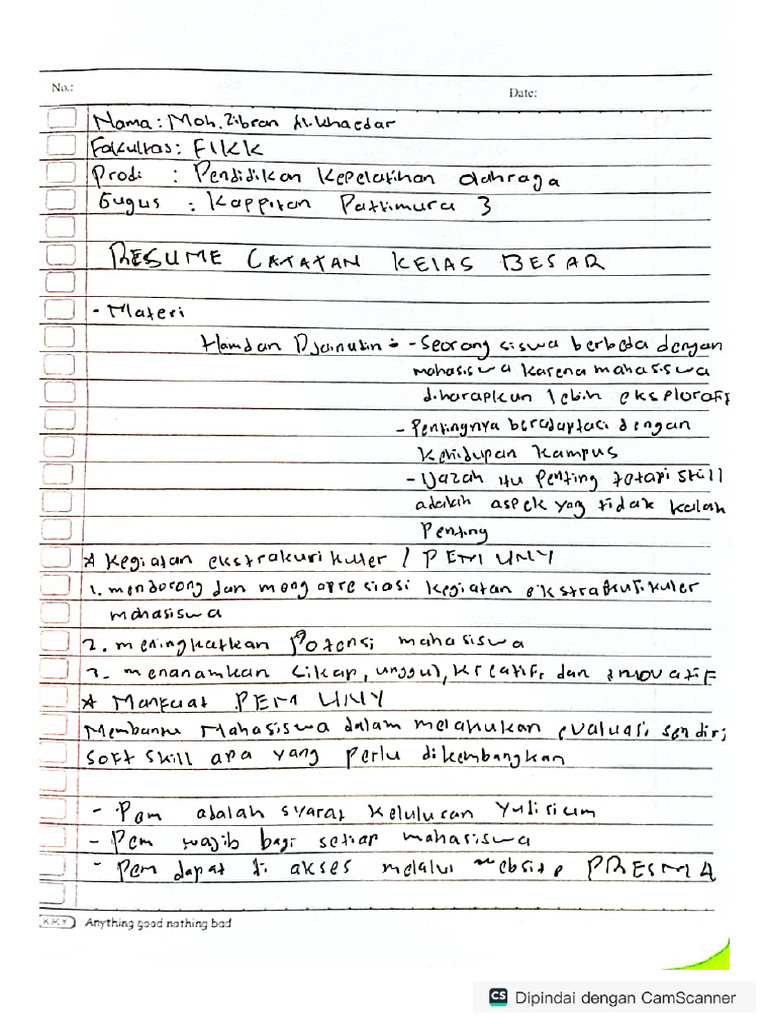 No.:
Date:
Nama : Moh. Zibran Al.khaedar
Fakultas : FIKK
Prodi : Pendidikan Kepelatihan olahraga
Gugus : Kappitan Pattimura 3
RESUME CATATAN KELAS BESAR
- Materi
Hamdan Djainutin : - Seorang siswa berbeda dengan
mahasiswa karena mahasiswa
diharapkan lebih eksploratif
- Pentingnya beradaptasi dengan
Kehidupan Kampus
- Ijazah itu penting tetapi skill
adalah aspek yang tidak kalah
Penting
* Kegiatan ekstrakurikuler / PEM UNY
1. mendorong dan mengapresiasi kegiatan ekstrakurikuler
mahasiswa
2. meningkatkan Potensi mahasiswa
3. menanamkan sikap, unggul, kreatif, dan inovatif
* Manfaat PEM UNY
Membantu Mahasiswa dalam melakukan evaluasi sendiri
soft skill apa yang perlu dikembangkan
- Pem adalah syarat kelulusan Yudisium
- Pem wajib bagi setiap mahasiswa
- Pem dapat di akses melalui website PRESMA
KIKY Anything good nothing bad
CS Dipindai dengan CamScanner